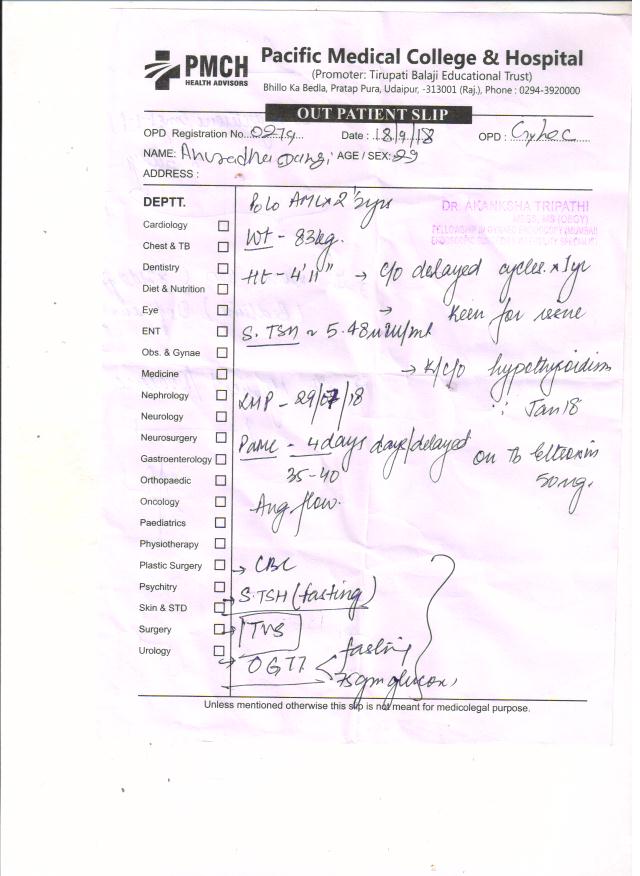 PMCH
HEALTH ADVISORS
Pacific Medical College & Hospital
(Promoter: Tirupati Balaji Educational Trust)
Bhillo Ka Bedla, Pratap Pura, Udaipur, -313001 (Raj.), Phone : 0294-3920000
OUT PATIENT SLIP
OPD Registration No. Date : 18/9/18 OPD :
NAME: AGE / SEX: 29
ADDRESS :
DEPTT.
DR. AKANKSHA TRIPATHI
MBBS, MS (OBGY)
Wt - 83kg.
Cardiology
Chest & TB
Ht - 4'11" → c/o delayed cycles x 1yr
Dentistry
Diet & Nutrition
→ Keen for
Eye
S. TSH ~ 5.48
ENT
Obs. & Gynae
→ K/c/o hypothyroidism
Medicine
Jan 18
Nephrology
LMP - 29/07/18
Neurology
Neurosurgery
4 days days/delayed on Tb
Gastroenterology
35-40
Orthopaedic
Oncology
Avg. flow.
Paediatrics
Physiotherapy
Plastic Surgery → CBC
Psychitry
S. TSH (fasting)
Skin & STD
Surgery → TVS
Urology
→ OGTT fasting
75gm glucose
Unless mentioned otherwise this slip is not meant for medicolegal purpose.